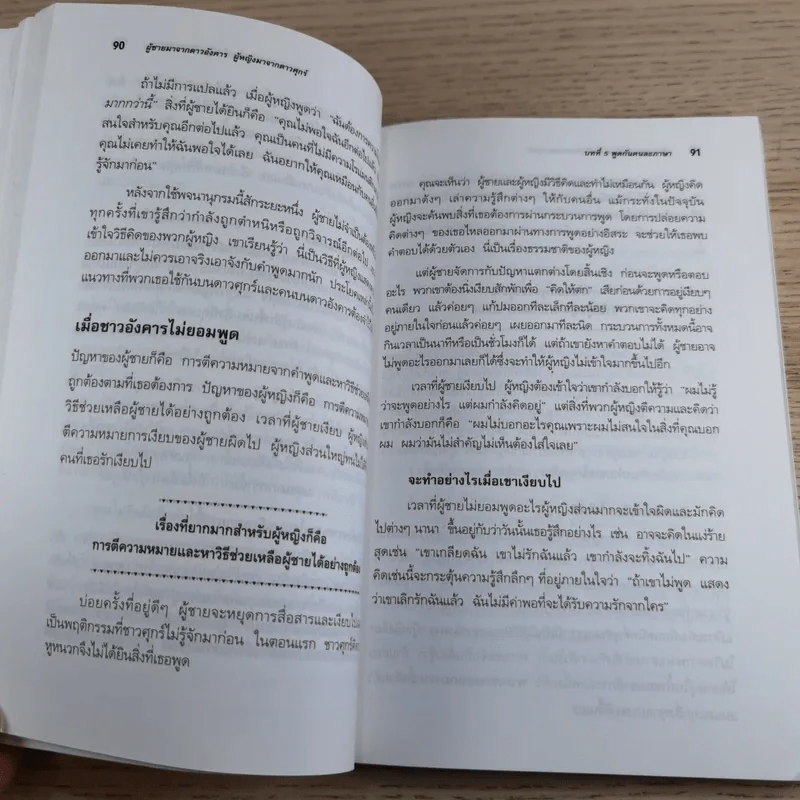 90 ผู้ชายมาจากดาวอังคาร ผู้หญิงมาจากดาวศุกร์
ถ้าไม่มีการแปลแล้ว เมื่อผู้หญิงพูดว่า "ฉันต้องการ
มากกว่านี้" สิ่งที่ผู้ชายได้ยินก็คือ "คุณไม่พอใจฉันอีกต่อไปแล้ว
สนใจสำหรับคุณอีกต่อไปแล้ว คุณเป็นคนที่ไม่มีความโรแมนติก
คุณไม่เคยทำให้ฉันพอใจได้เลย ฉันอยากให้คุณเหมือนกับคน
รู้จักมาก่อน"
หลังจากใช้พจนานุกรมนี้สักระยะหนึ่ง ผู้ชายไม่จำเป็นต้อง
ทุกครั้งที่เขารู้สึกว่ากำลังถูกตำหนิหรือถูกวิจารณ์อีกต่อไป
เข้าใจวิธีคิดของพวกผู้หญิง เขาเรียนรู้ว่า นี่เป็นวิธีที่ผู้หญิงแสดง
ออกมาและไม่ควรเอาจริงเอาจังกับคำพูดมากนัก ประโยคเหล่านี้
แนวทางที่พวกเธอใช้กันบนดาวศุกร์และคนบนดาวอังคารต้อง
เมื่อชาวอังคารไม่ยอมพูด
ปัญหาของผู้ชายก็คือ การตีความหมายจากคำพูดและหาวิธีช่วยเหลือ
ถูกต้องตามที่เธอต้องการ ปัญหาของผู้หญิงก็คือ การตีความหมาย
วิธีช่วยเหลือผู้ชายได้อย่างถูกต้อง เวลาที่ผู้ชายเงียบ ผู้หญิง
ตีความหมายการเงียบของผู้ชายผิดไป ผู้หญิงส่วนใหญ่ทนไม่ได้
คนที่เธอรักเงียบไป
เรื่องที่ยากมากสำหรับผู้หญิงก็คือ
การตีความหมายและหาวิธีช่วยเหลือผู้ชายได้อย่างถูกต้อง
บ่อยครั้งที่อยู่ดีๆ ผู้ชายจะหยุดการสื่อสารและเงียบไป
เป็นพฤติกรรมที่ชาวศุกร์ไม่รู้จักมาก่อน ในตอนแรก ชาวศุกร์คิด
หูหนวกจึงไม่ได้ยินสิ่งที่เธอพูด
บทที่ 5 พูดกันคนละภาษา 91
คุณจะเห็นว่า ผู้ชายและผู้หญิงมีวิธีคิดและทำไม่เหมือนกัน ผู้หญิงคิด
ออกมาดังๆ เล่าความรู้สึกต่างๆ ให้กับคนอื่น แม้กระทั่งในปัจจุบัน
ผู้หญิงจะค้นพบสิ่งที่เธอต้องการผ่านกระบวนการพูด โดยการปล่อยความ
คิดต่างๆ ของเธอไหลออกมาผ่านทางการพูดอย่างอิสระ จะช่วยให้เธอพบ
คำตอบได้ด้วยตัวเอง นี่เป็นเรื่องธรรมชาติของผู้หญิง
แต่ผู้ชายจัดการกับปัญหาแตกต่างโดยสิ้นเชิง ก่อนจะพูดหรือตอบ
อะไร พวกเขาต้องนิ่งเงียบสักพักเพื่อ "คิดให้ตก" เสียก่อนด้วยการอยู่เงียบๆ
คนเดียว แล้วค่อยๆ แก้ปมออกทีละเล็กทีละน้อย พวกเขาจะคิดทุกอย่าง
อยู่ภายในใจก่อนแล้วค่อยๆ เผยออกมาทีละนิด กระบวนการทั้งหมดนี้อาจ
กินเวลาเป็นนาทีหรือเป็นชั่วโมงก็ได้ แต่ถ้าเขายังหาคำตอบไม่ได้ ผู้ชายอาจ
ไม่พูดอะไรออกมาเลยก็ได้ซึ่งจะทำให้ผู้หญิงไม่เข้าใจมากขึ้นไปอีก
เวลาที่ผู้ชายเงียบไป ผู้หญิงต้องเข้าใจว่าเขากำลังบอกให้รู้ว่า "ผมไม่รู้
ว่าจะพูดอย่างไร แต่ผมกำลังคิดอยู่" แต่สิ่งที่พวกผู้หญิงตีความและคิดว่า
เขากำลังบอกก็คือ "ผมไม่บอกอะไรคุณเพราะผมไม่สนใจในสิ่งที่คุณบอก
ผม ผมว่ามันไม่สำคัญไม่เห็นต้องใส่ใจเลย"
จะทำอย่างไรเมื่อเขาเงียบไป
เวลาที่ผู้ชายไม่ยอมพูดอะไรผู้หญิงส่วนมากจะเข้าใจผิดและมักคิด
ไปต่างๆ นานา ขึ้นอยู่กับว่าวันนั้นเธอรู้สึกอย่างไร เช่น อาจจะคิดในแง่ร้าย
สุดเช่น "เขาเกลียดฉัน เขาไม่รักฉันแล้ว เขากำลังจะทิ้งฉันไป" ความ
คิดเช่นนี้จะกระตุ้นความรู้สึกลึกๆ ที่อยู่ภายในใจว่า "ถ้าเขาไม่พูด แสดง
ว่าเขาเลิกรักฉันแล้ว ฉันไม่มีค่าพอที่จะได้รับความรักจากใคร"